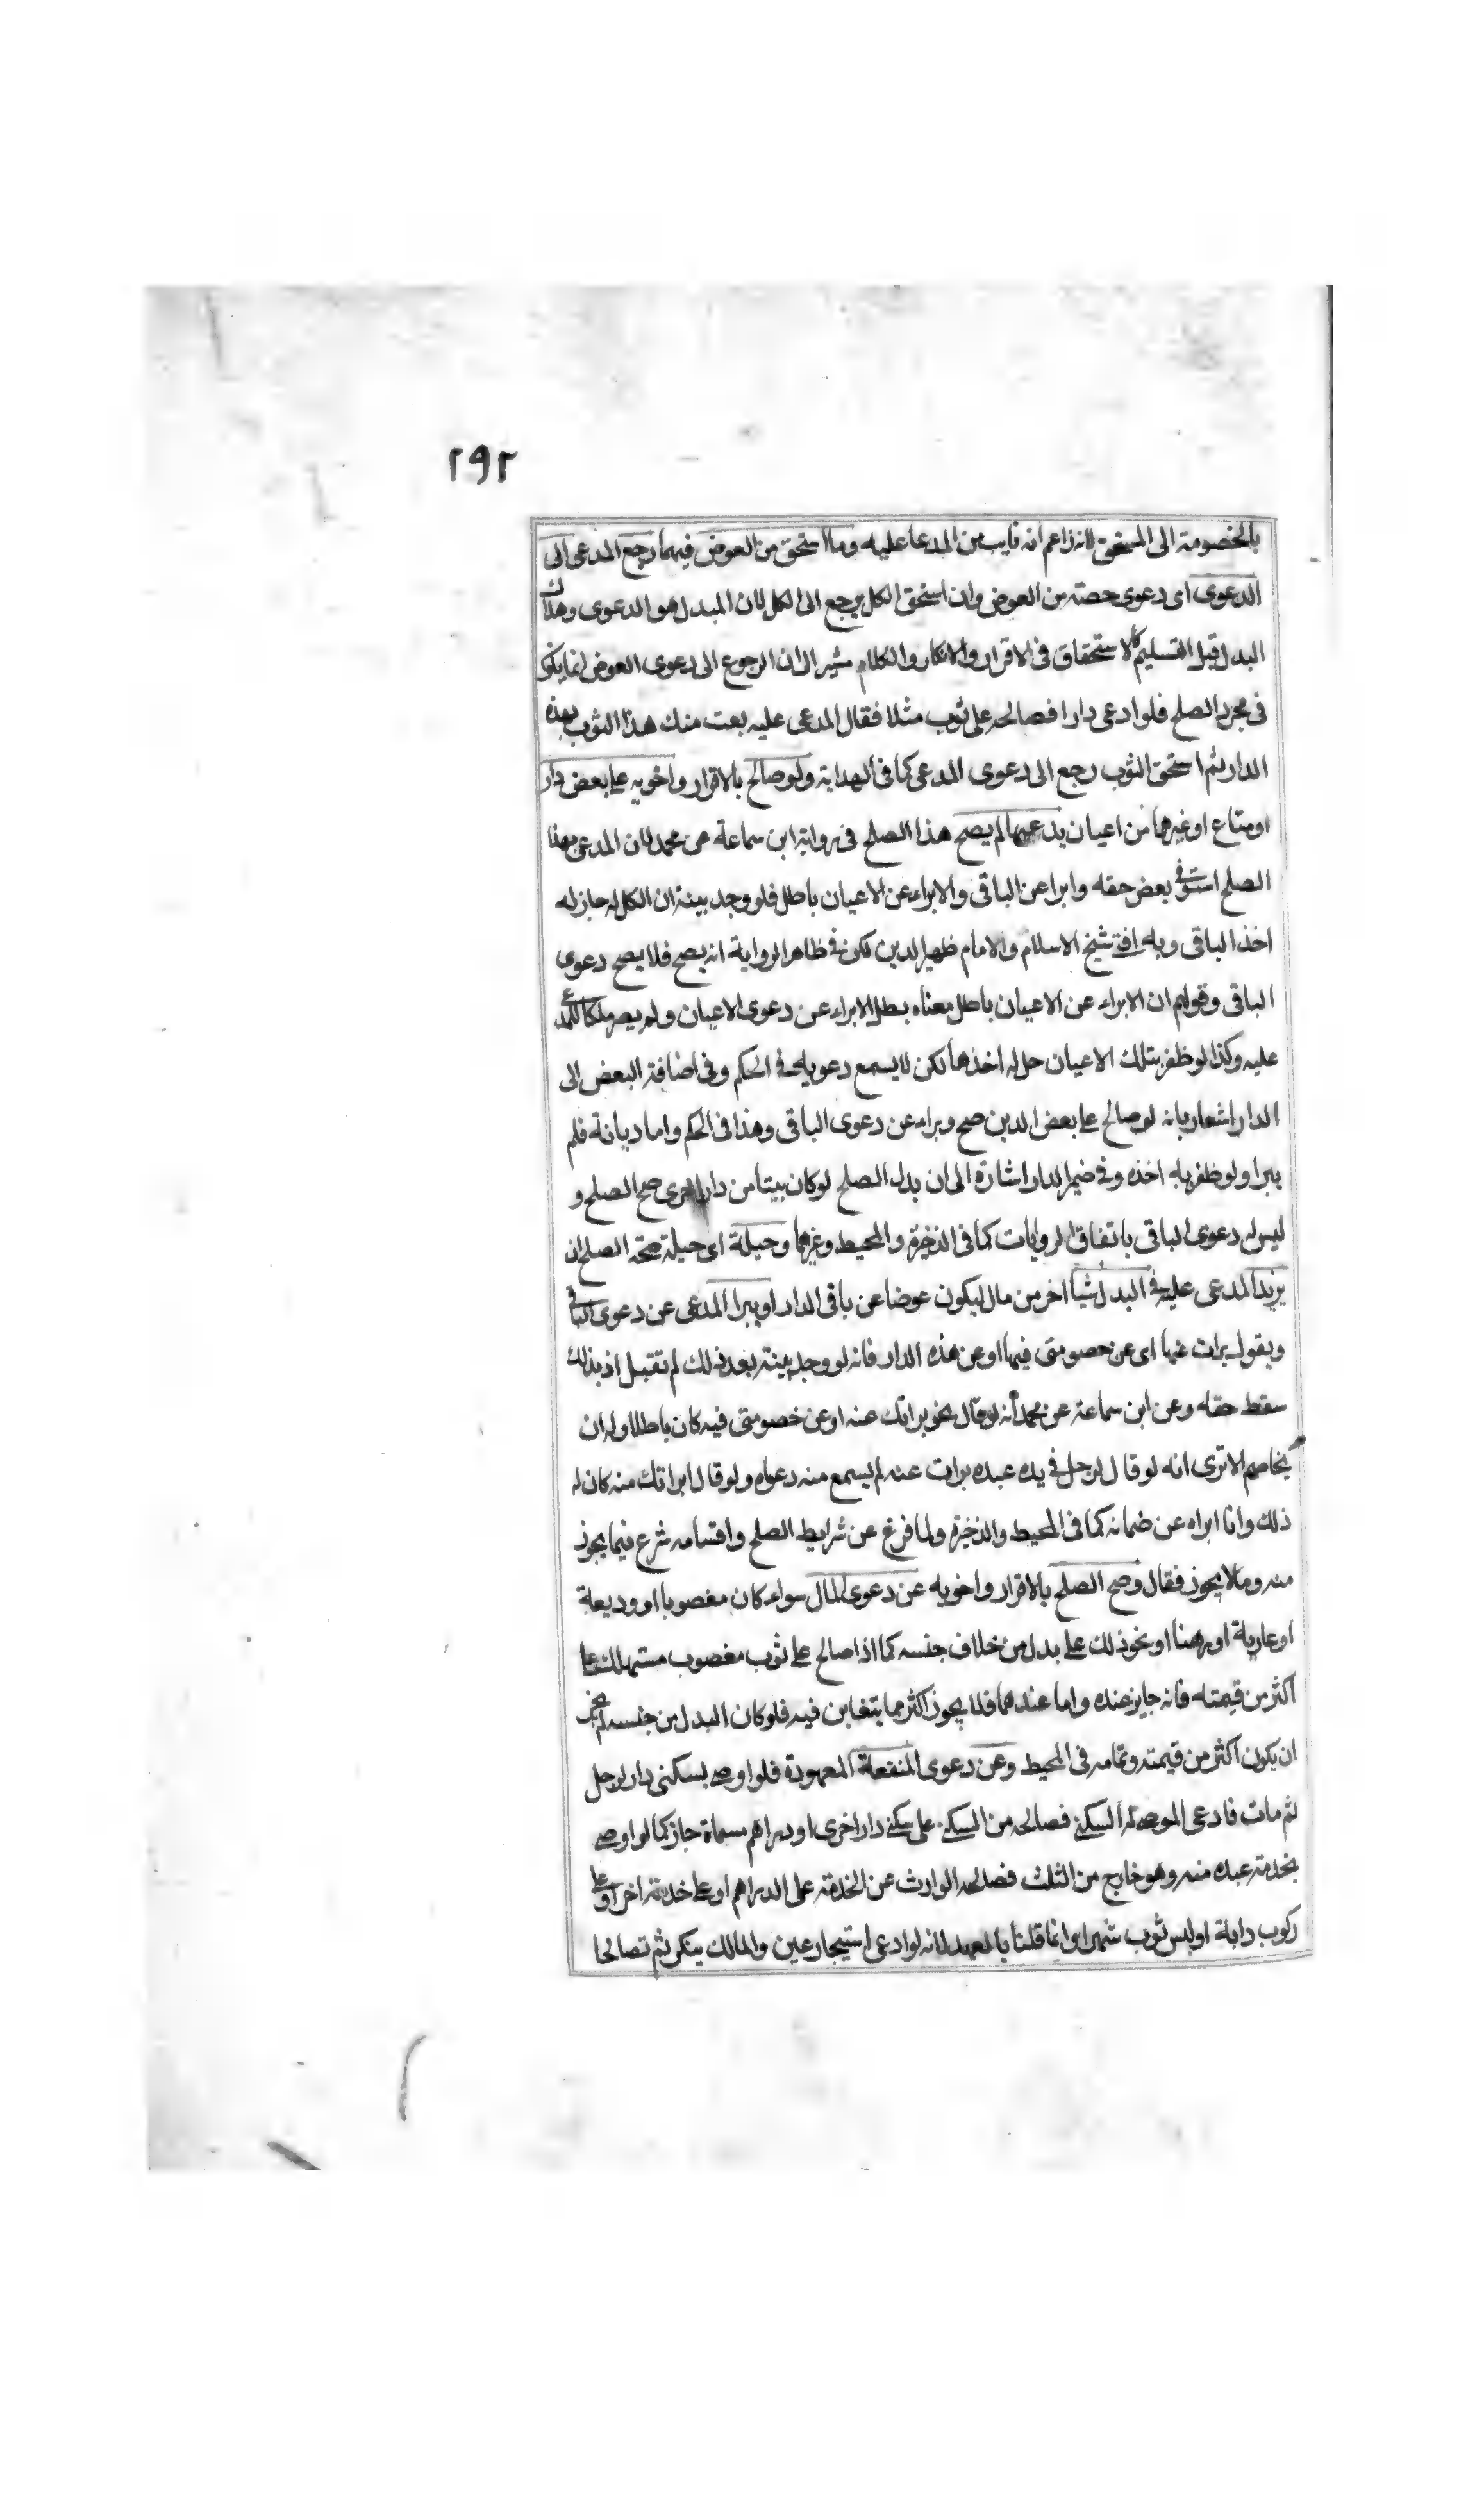 ٢٩٢
بالخصومة الى المستحق لانه زاعم انه نايب من المدعا عليه وما استحق من العوض فيهما رجع المدعى الى
الدعوى اى دعوى حصته من العوض وان استحق الكل يرجع الى الكل لان المبدل هو الدعوى وهلاك
البدل قبل التسليم كالاستحقاق فى الاقرار والانكار والكلام مشير الى ان الرجوع الى دعوى العوض انما يكون
فى مجرد الصلح فلو ادعى دارا فصالحه على ثوب مثلا فقال المدعى عليه بعت منك هذا الثوب بهذه
الدار ثم استحق الثوب رجع الى دعوى المدعى كما فى الهداية ولو صالح بالاقرار واخويه على بعض دار
او متاع او غيرهما من اعيان يدعيها لم يصح هذا الصلح فى رواية ابن سماعة عن محمد لان المدعى بهذا
الصلح استوفى بعض حقه وابرا عن الباقى والابراء عن الاعيان باطل فلو وجد بينة ان الكل له جاز له
اخذ الباقى وبه افتى شيخ الاسلام والامام ظهير الدين لكن فى ظاهر الرواية انه يصح فلا يصح دعوى
الباقى وقولهم ان الابراء عن الاعيان باطل معناه بطل الابراء عن دعوى الاعيان ولم يصر ملكا للمدعى
عليه وكذا لو ظفر بتلك الاعيان حل له اخذها لكن لا يسمع دعويه فى الحكم وفى اضافة البعض الى
الدار اشعار بانه لو صالح على بعض الدين صح وبراء عن دعوى الباقى وهذا فى الحكم واما ديانة فلم
يبرا ولو ظفر به اخذه وفى ضمير الدار اشارة الى ان بدل الصلح لو كان بيتا من دار اخرى صح الصلح و
ليس له دعوى الباقى باتفاق الروايات كما فى الذخيرة والمحيط وغيرهما وحيلة اى حيلة صحة الصلح ان
يزيد المدعى عليه فى البدل شيأ اخر من مال ليكون عوضا عن باقى الدار او يبرا المدعى عن دعوى الباقى
ويقول برات عنها اى عن خصومتى فيها او عن هذه الدار فانه لو وجد بينة بعد ذلك لم تقبل اذ بذلك
سقط حقه وعن ابن سماعة عن محمد انه لو قال نحو براتك عنه او عن خصومتى فيه كان باطلا وله ان
يخاصم الا ترى انه لو قال لرجل فى يده عبده برات عنه لم يسمع منه دعواه ولو قال ابراتك منه كان له
ذلك وانا ابراه عن ضمانه كما فى المحيط والذخيرة ولما فرغ عن شرايط الصلح واقسامه شرع فيما يجوز
منه وما لا يجوز فقال وصح الصلح بالاقرار واخويه عن دعوى المال سواء كان مغصوبا او وديعة
او عارية او رهنا او نحو ذلك على بدل من خلاف جنسه كما اذا صالح على ثوب مغصوب مستهلك على
اكثر من قيمته فانه جايز عنده واما عندهما فلا يجوز اكثر مما يتغابن فيه فلو كان البدل من جنسه لم يجز
ان يكون اكثر من قيمته وتمامه فى المحيط وعن دعوى المنفعة المعهودة فلو اوصى بسكنى دار لرجل
ثم مات فادعى الموصى له السكنى فصالحه من السكنى على سكنى دار اخرى او دراهم مسماة جاز كما لو اوصى
بخدمة عبده منه وهو خارج من الثلث فصالحه الوارث عن الخدمة على الدراهم او على خدمة اخر او على
ركوب دابة او لبس ثوب شهرا وانما قلنا بالمعهد لانه لو ادعى استيجار عين والمالك ينكر ثم تصالحا